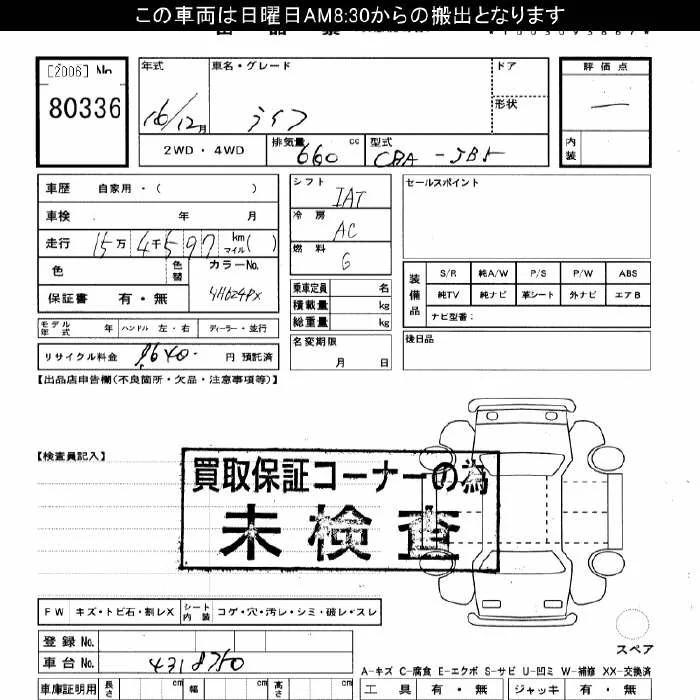 この車両は日曜日AM8:30からの搬出となります
[2006] No
80336
年式 車名・グレード ドア 評価点
16/12月 ライフ 形状 ―
2WD・4WD 排気量 660 cc 型式 CBA-JB5 内装
車歴 自家用・( )
シフト IAT
セールスポイント
車検 年 月
冷房 AC
走行 15万4千597 km マイル( )
燃料 G
色 色替 カラーNo.
保証書 有・無 YH624PX
乗車定員 名
積載量 kg
総重量 kg
装備品 S/R 純A/W P/S P/W ABS
純TV 純ナビ 革シート 外ナビ エアB
ナビ型番:
モデル年式 年 ハンドル 左・右 ディーラー・並行
名変期限 月 日
後日品
リサイクル料金 9640. 円 預託済
【出品店申告欄(不良箇所・欠品・注意事項等)】
【検査員記入】
買取保証コーナーの為
未検査
FW キズ・トビ石・割レX シート内装 コゲ・穴・汚レ・シミ・破レ・スレ
登録No.
車台No. 4318750
スペア
A-キズ C-腐食 E-エクボ S-サビ U-凹ミ W-補修 XX-交換済
車庫証明用 長さ cm 幅 cm 高さ cm
工具 有・無 ジャッキ 有・無